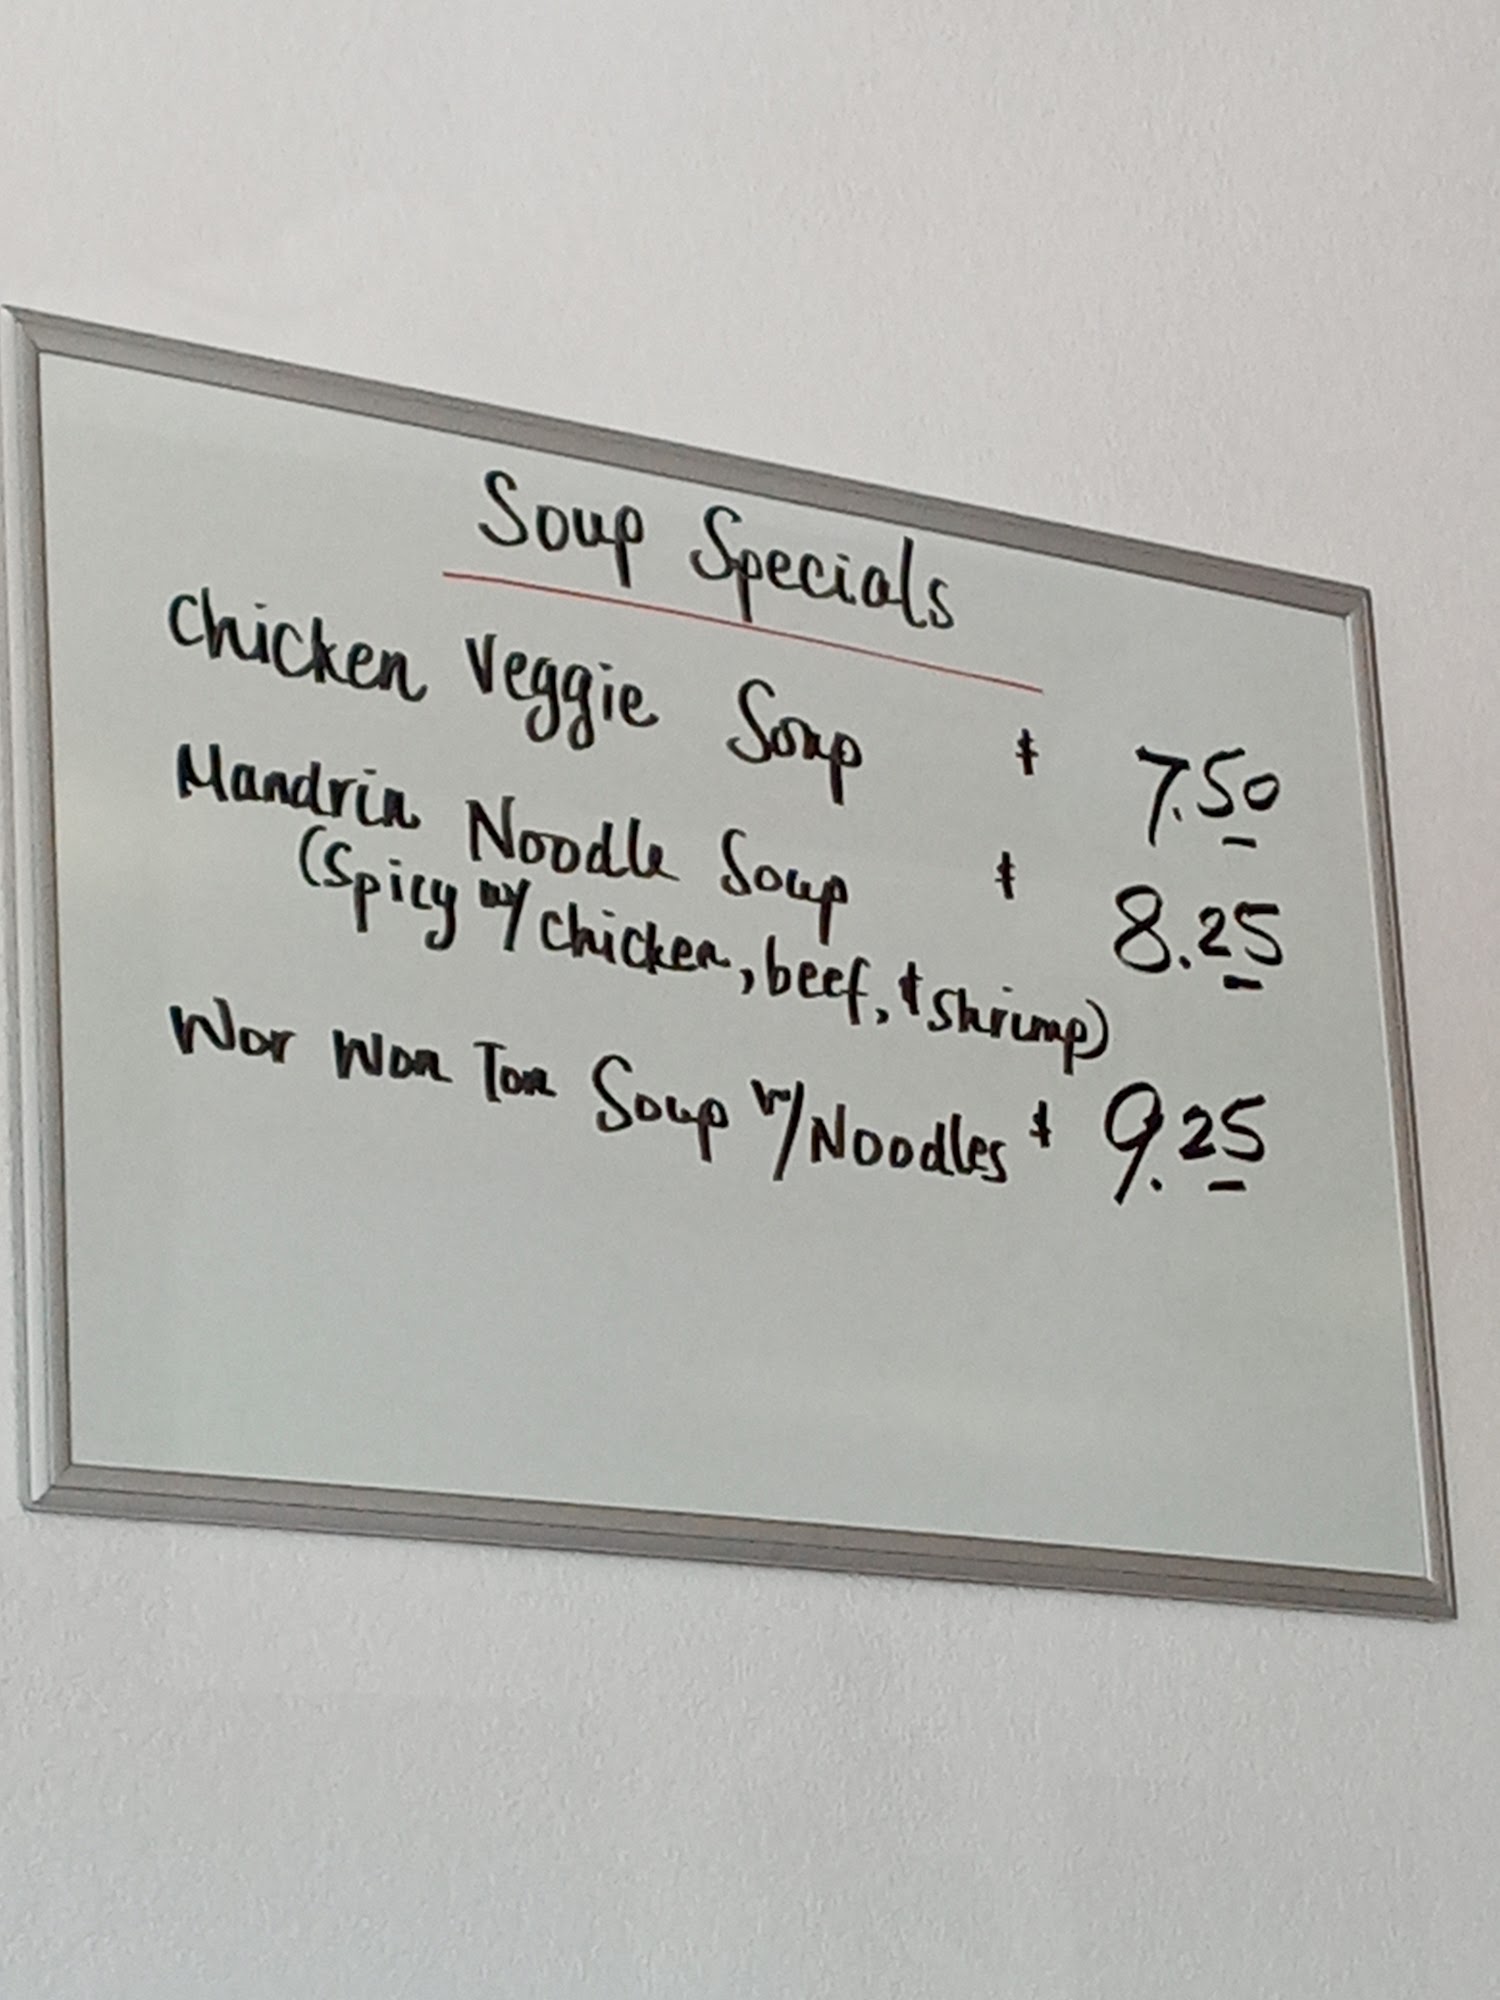 Soup Specials
Chicken Veggie Soup $ 7.50
Mandrin Noodle Soup $ 8.25
(Spicy w/ chicken, beef, & shrimp)
Wor Won Ton Soup w/ Noodles $ 9.25